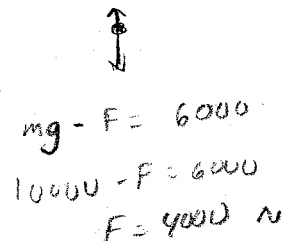 mg - F = 6000
10000 - F = 6000
F = 4000 N